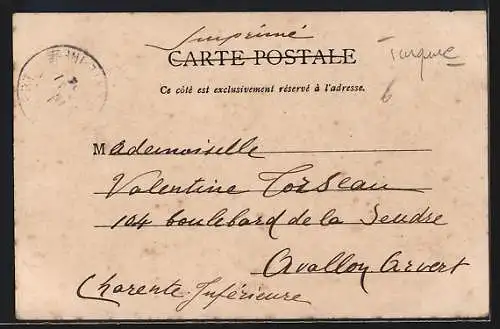 Imprimé
CARTE POSTALE
Turquie
Ce côté est exclusivement réservé à l'adresse.
6
Mademoiselle
Valentine Corseau
104 boulebard de la Seudre
Avallon Arvert
Charente-Inférieure